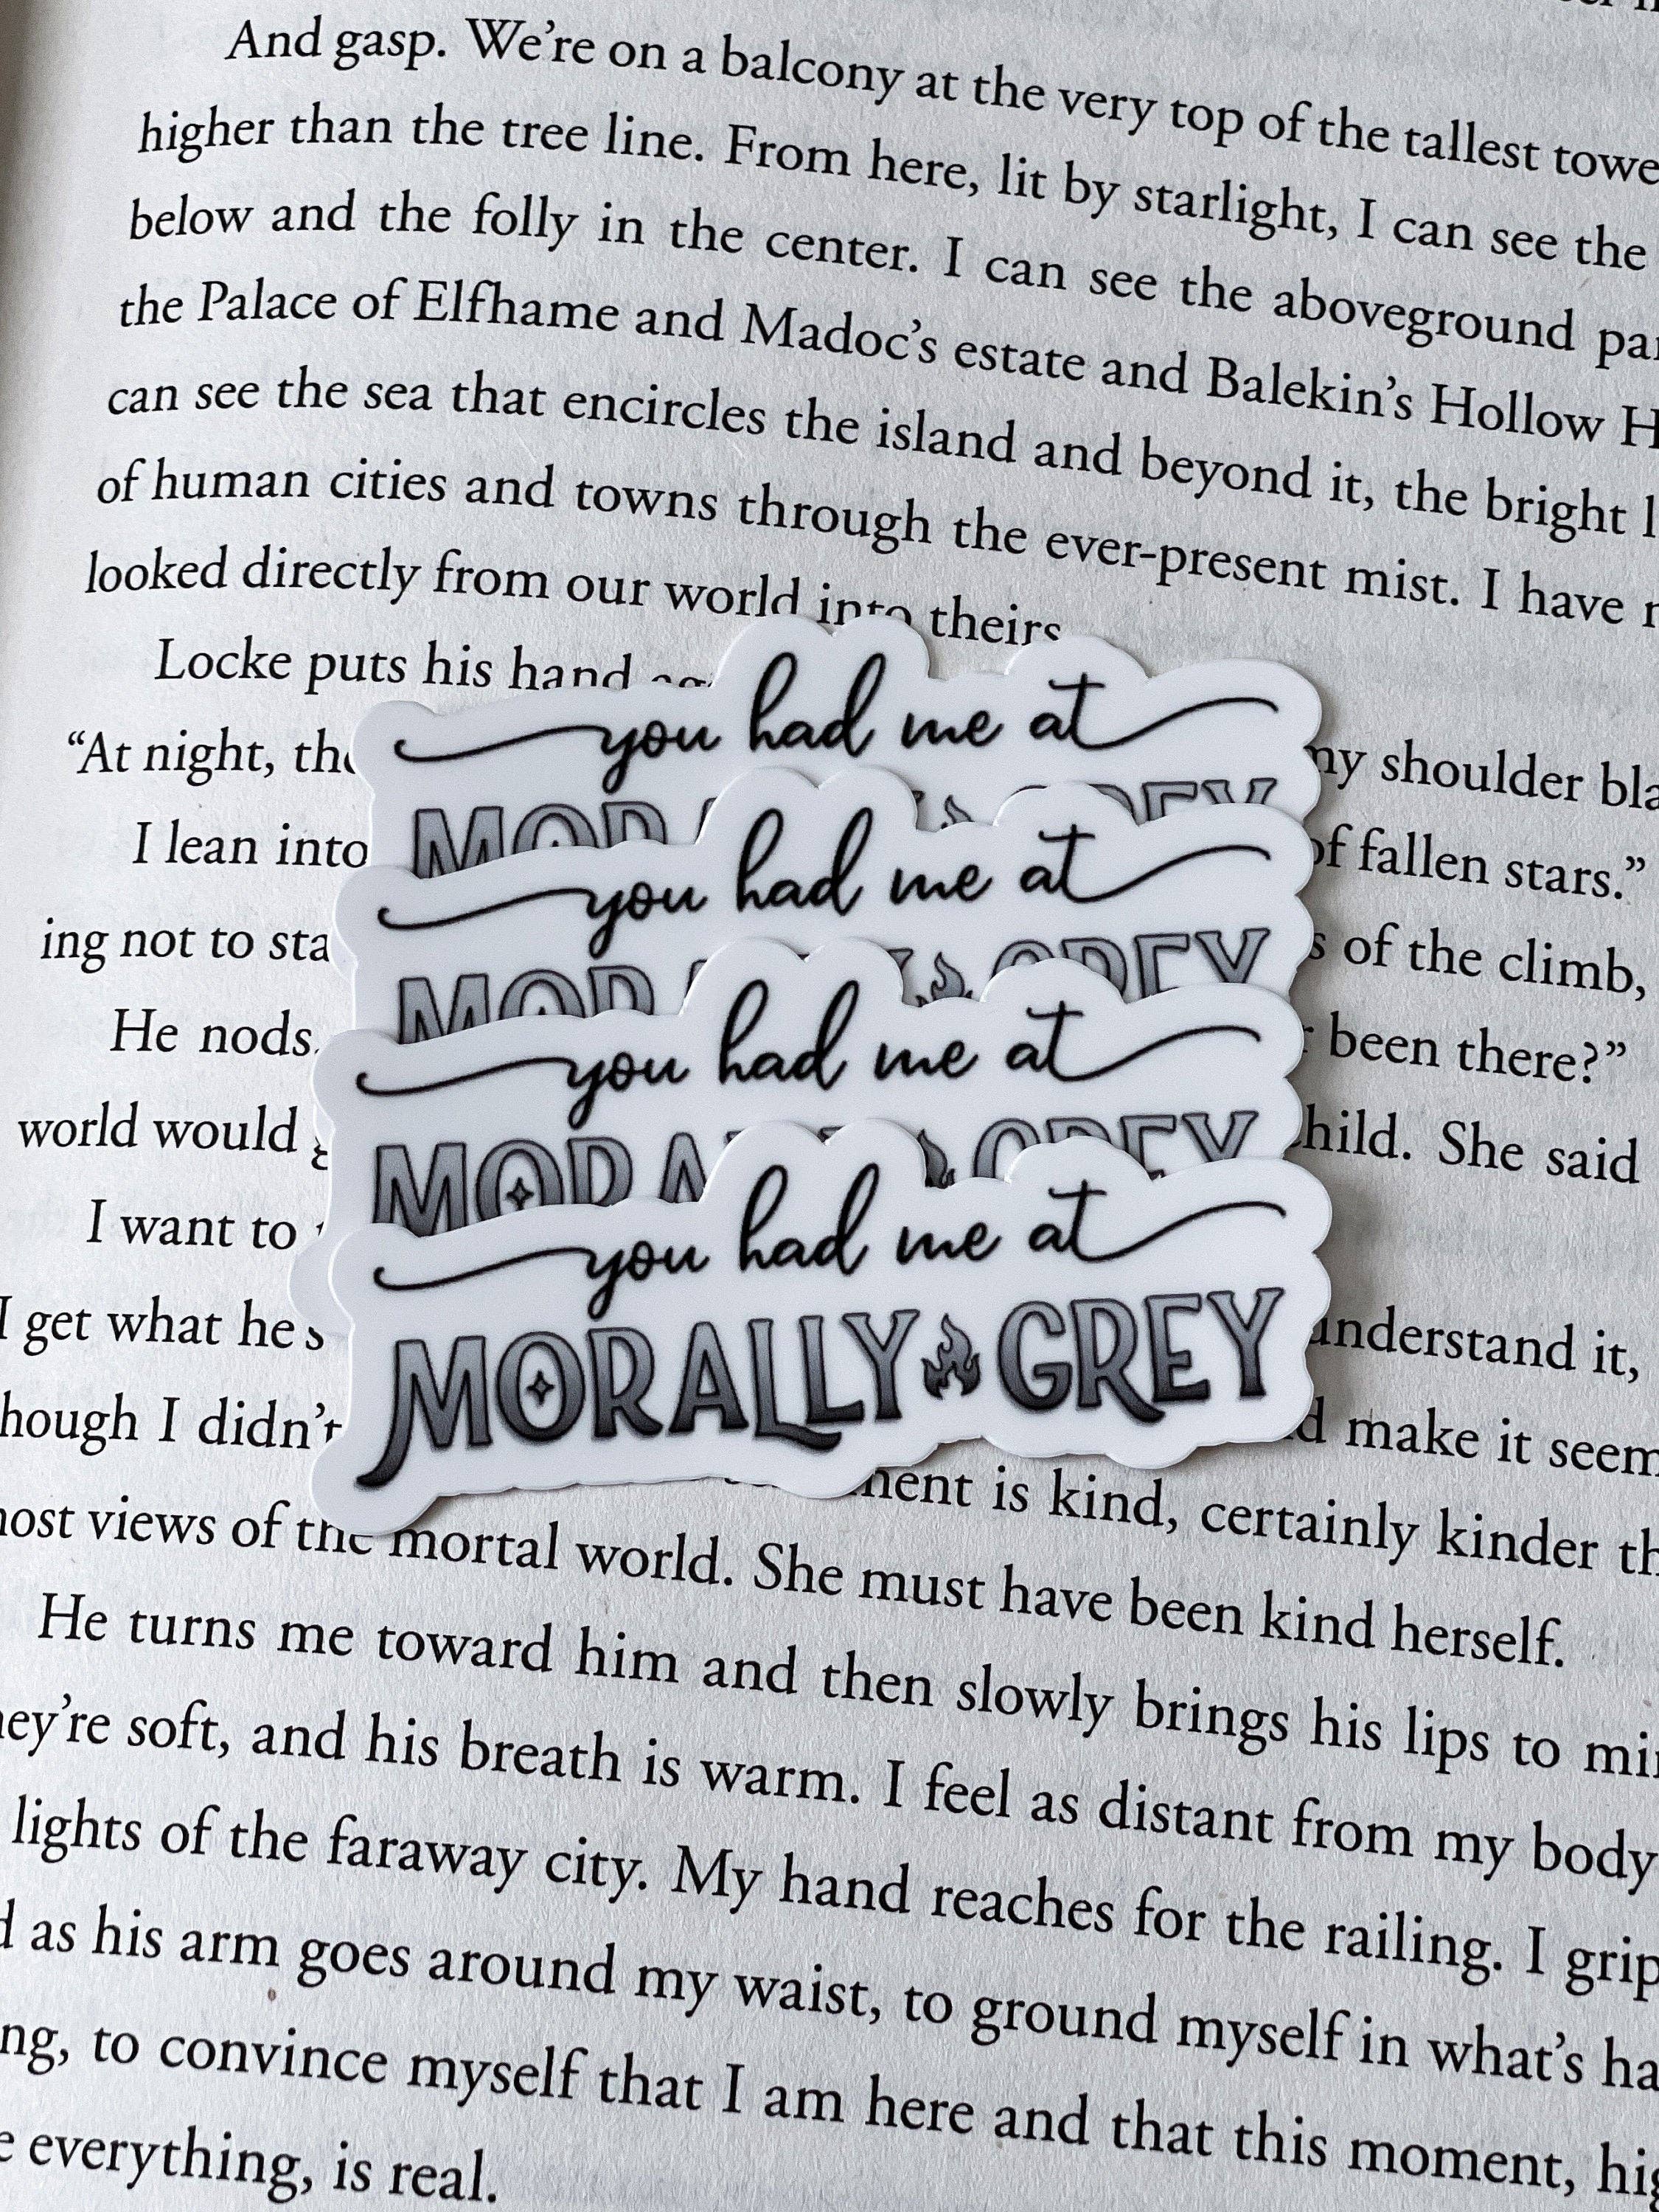 And gasp. We're on a balcony at the very top of the tallest
higher than the tree line. From here, lit by starlight, I can see the
below and the folly in the center. I can see the aboveground
the Palace of Elfhame and Madoc's estate and Balekin's Hollow
can see the sea that encircles the island and beyond it, the bright
of human cities and towns through the ever-present mist. I have
looked directly from our world into theirs
Locke puts his hand
"At night, my shoulder
I lean into of fallen stars."
ing not to of the climb,
He nods. been there?"
world would She said
I want to
I get what understand it,
I didn't make it seem
views of the mortal world. She must have been kind herself.
is kind, certainly kinder
He turns me toward him and then slowly brings his lips to
soft, and his breath is warm. I feel as distant from my body
lights of the faraway city. My hand reaches for the railing. I grip
as his arm goes around my waist, to ground myself in what's
to convince myself that I am here and that this moment,
everything, is real.
you had me at
you had me at
you had me at
you had me at
MORALLY GREY